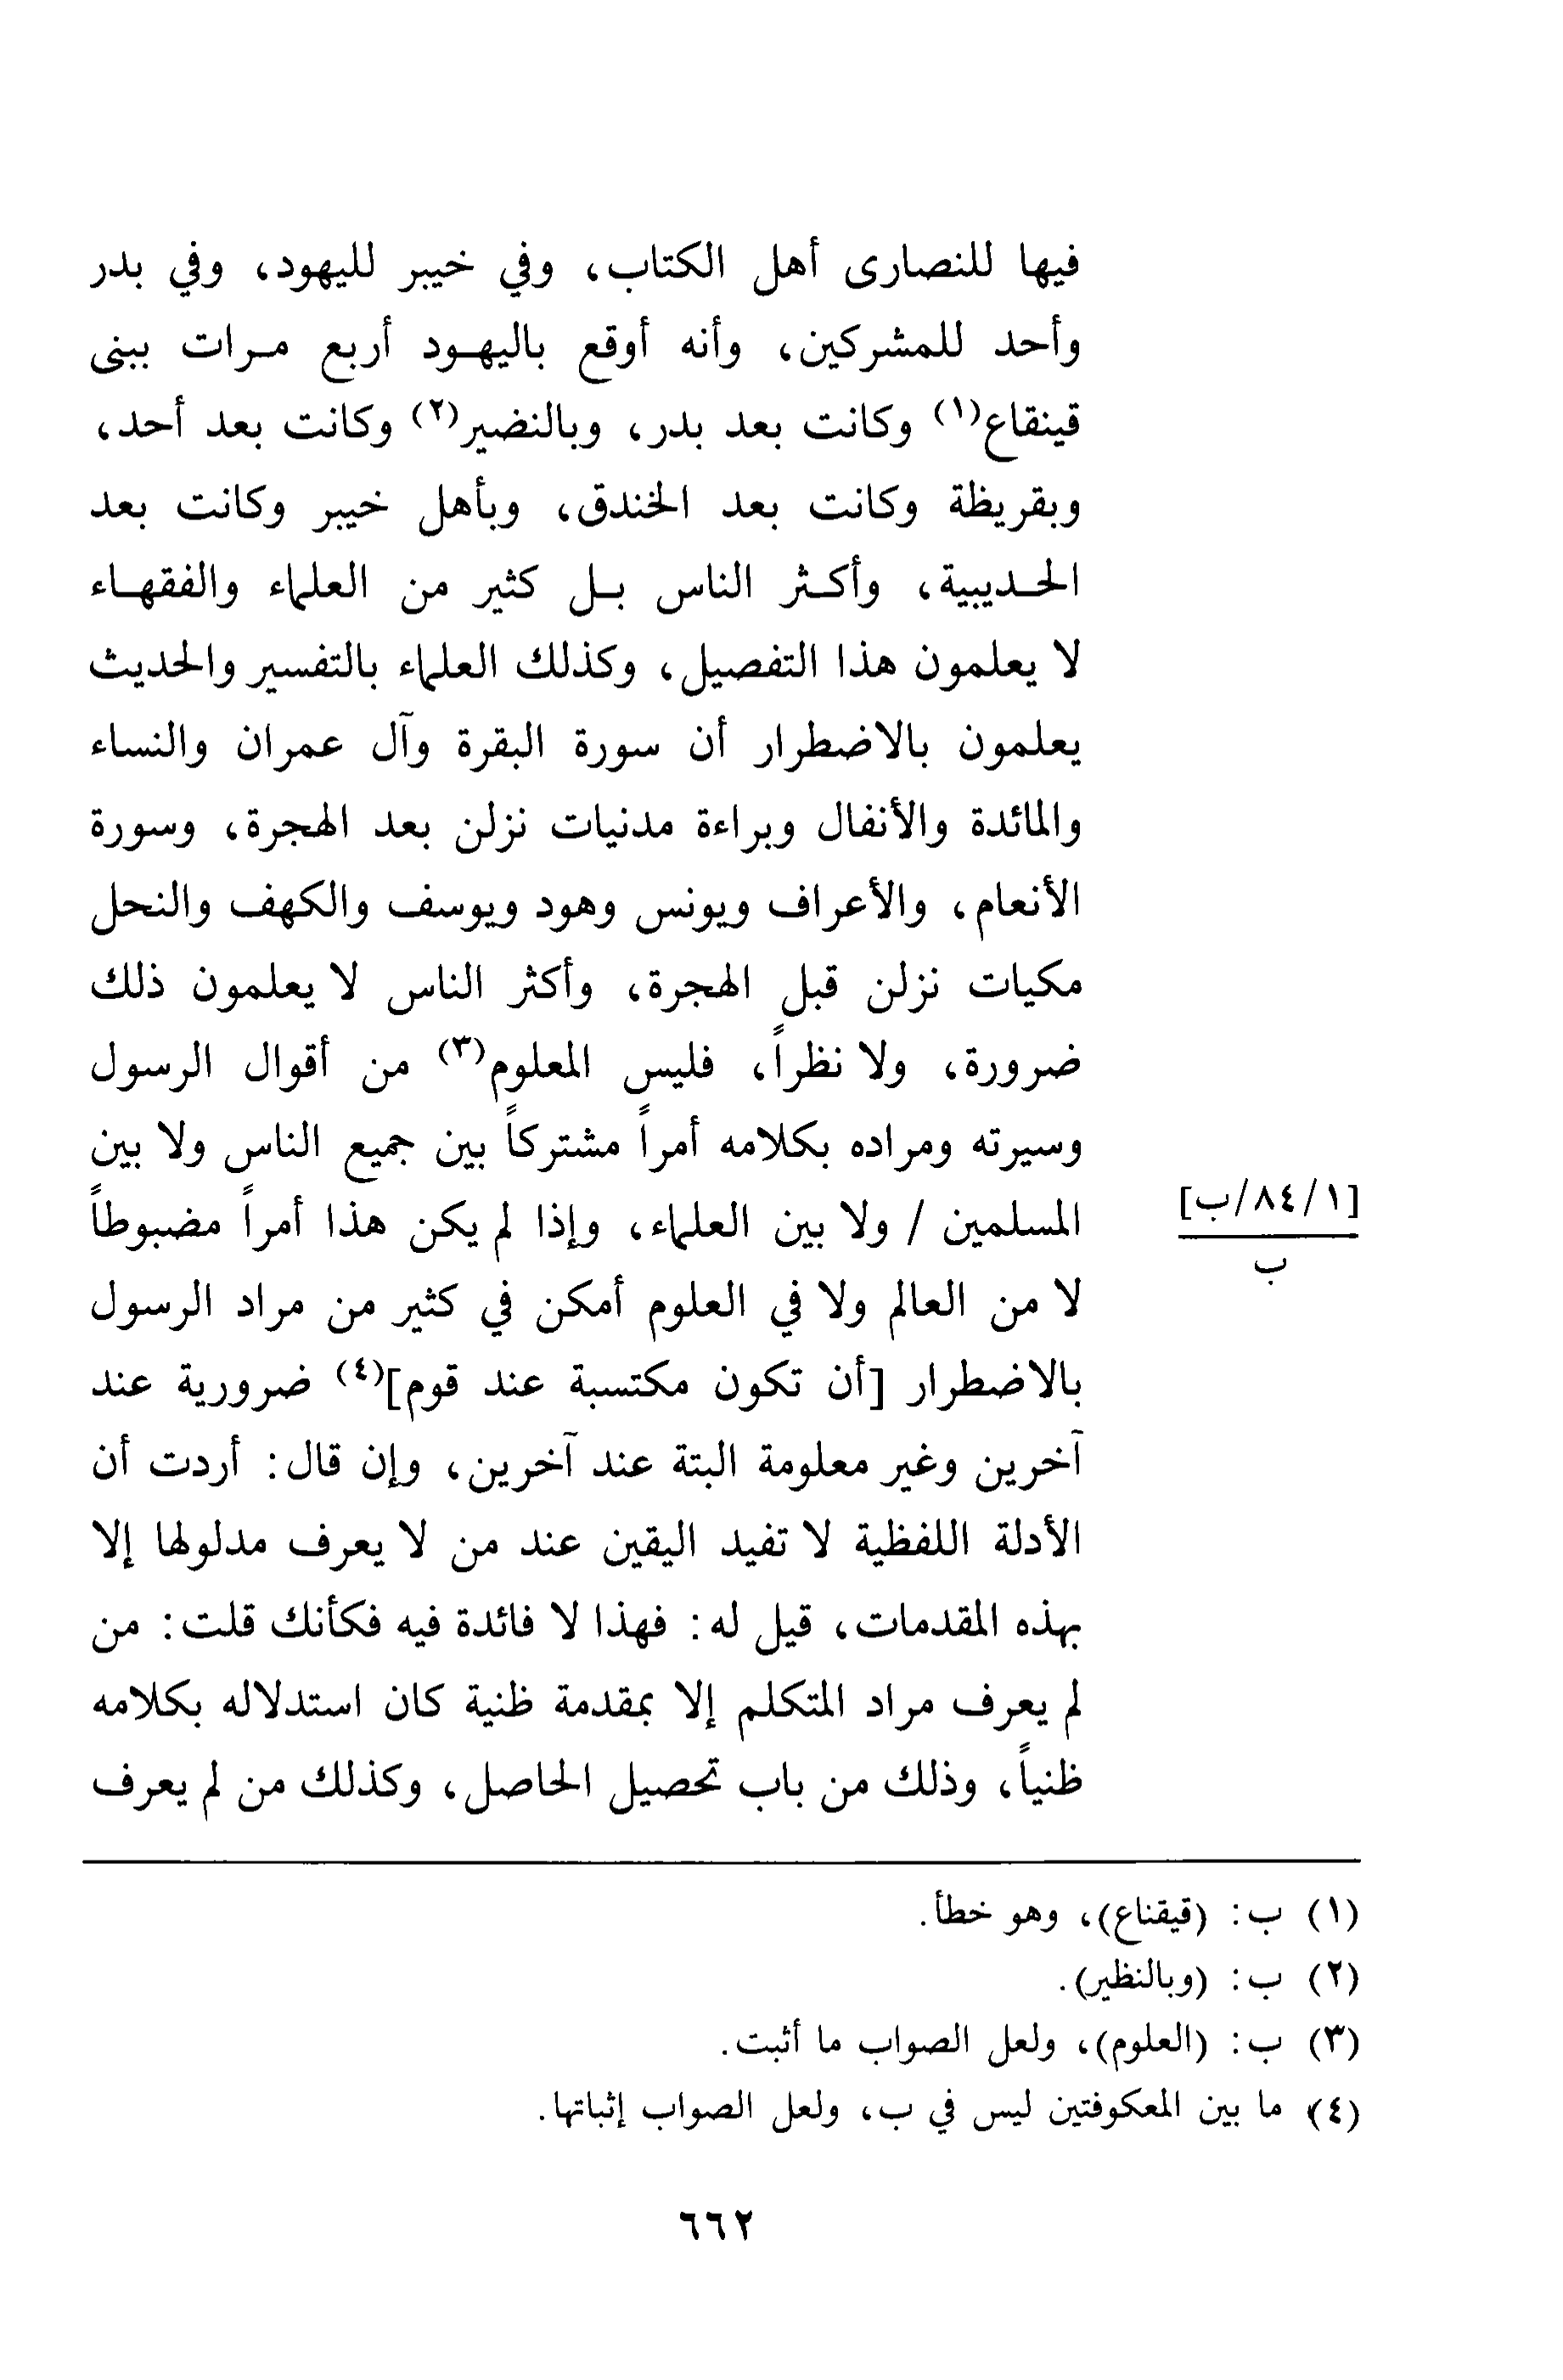 فيها للنصارى أهل الكتاب، وفي خيبر لليهود، وفي بدر
وأحد للمشركين، وأنه أوقع باليهود أربع مرات ببنى
قينقاع(١) وكانت بعد بدر، وبالنضير(٢) وكانت بعد أحد،
وبقريظة وكانت بعد الخندق، وبأهل خيبر وكانت بعد
الحديبية، وأكثر الناس بل كثير من العلماء والفقهاء
لا يعلمون هذا التفصيل، وكذلك العلماء بالتفسير والحديث
يعلمون بالاضطرار أن سورة البقرة وآل عمران والنساء
والمائدة والأنفال وبراءة مدنيات نزلن بعد الهجرة، وسورة
الأنعام، والأعراف ويونس وهود ويوسف والكهف والنحل
مكيات نزلن قبل الهجرة، وأكثر الناس لا يعلمون ذلك
ضرورة، ولا نظراً، فليس المعلوم(٣) من أقوال الرسول
وسيرته ومراده بكلامه أمراً مشتركاً بين جميع الناس ولا بين
المسلمين / ولا بين العلماء، وإذا لم يكن هذا أمراً مضبوطاً
[١/٨٤/ب]
ب
لا من العالم ولا في العلوم أمكن في كثير من مراد الرسول
بالاضطرار [أن تكون مكتسبة عند قوم](٤) ضرورية عند
آخرين وغير معلومة البتة عند آخرين، وإن قال: أردت أن
الأدلة اللفظية لا تفيد اليقين عند من لا يعرف مدلولها إلا
بهذه المقدمات، قيل له: فهذا لا فائدة فيه فكأنك قلت: من
لم يعرف مراد المتكلم إلا بمقدمة ظنية كان استدلاله بكلامه
ظنياً، وذلك من باب تحصيل الحاصل، وكذلك من لم يعرف
(١) ب: (قيقناع)، وهو خطأ.
(٢) ب: (وبالنظير).
(٣) ب: (العلوم)، ولعل الصواب ما أثبت.
(٤) ما بين المعكوفتين ليس في ب، ولعل الصواب إثباتها.
٦٦٢